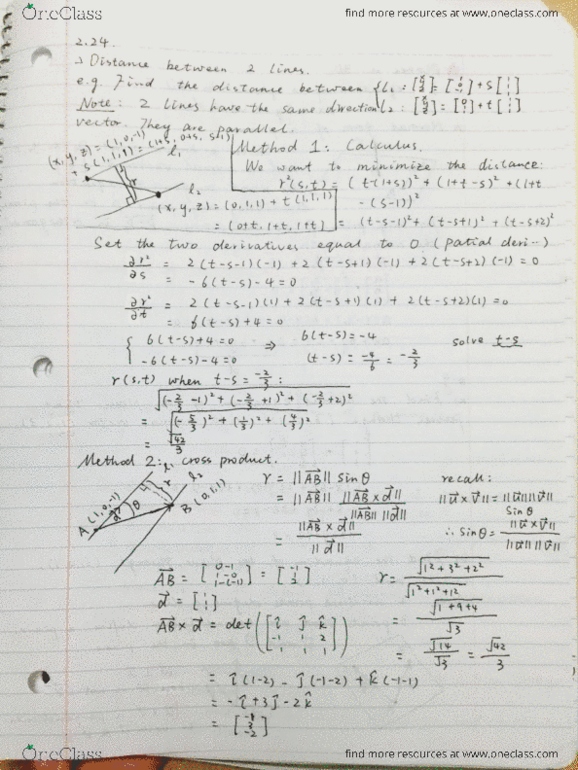 OneClass find more resources at www.oneclass.com
2.24.
Distance between 2 lines.
e.g. Find the distance between { L₁ : [x y z] = [1 0 -1] + s[1 1 1]
Note: 2 lines have the same direction L₂ : [x y z] = [0 1 1] + t[1 1 1]
vector. They are parallel.
(x, y, z) = (1, 0, -1)
+ s(1, 1, 1) = (1+s, 0+s, s-1)
l₁
l₂
r
(x, y, z) = (0, 1, 1) + t(1, 1, 1)
= (0+t, 1+t, 1+t)
Method 1: Calculus.
We want to minimize the distance:
r²(s,t) = (t-(1+s))² + (1+t-s)² + (1+t
-(s-1))²
= (t-s-1)² + (t-s+1)² + (t-s+2)²
Set the two derivatives equal to 0 (patial deri--)
∂r²/∂s = 2(t-s-1)(-1) + 2(t-s+1)(-1) + 2(t-s+2)(-1) = 0
= -6(t-s)-4=0
∂r²/∂t = 2(t-s-1)(1) + 2(t-s+1)(1) + 2(t-s+2)(1) = 0
= 6(t-s)+4=0
{ 6(t-s)+4=0 ⇒ 6(t-s)=-4 solve t-s
-6(t-s)-4=0 (t-s) = -4/6 = -2/3
r(s,t) when t-s = -2/3 :
√((-2/3 -1)² + (-2/3 +1)² + (-2/3+2)²)
= √((-5/3)² + (1/3)² + (4/3)²)
= √42/3
Method 2: cross product.
l₁
l₂
r
A (1, 0, -1)
d
θ
B (0, 1, 1)
r = ||AB|| sinθ
= ||AB|| ||AB × d|| / ||AB|| ||d||
= ||AB × d|| / ||d||
recall:
||u × v|| = ||u|| ||v||
sinθ
∴ sinθ = ||u × v|| / ||u|| ||v||
AB = [0-1 1-0 1-(-1)] = [-1 1 2]
d = [1 1 1]
AB × d = det([i j k -1 1 2 1 1 1])
= i(1-2) - j(-1-2) + k(-1-1)
= -i+3j-2k
= [-1 3 -2]
r = √(1²+3²+2²) / √(1²+1²+1²)
= √(1+9+4) / √3
= √14/√3 = √42/3
OneClass find more resources at www.oneclass.com